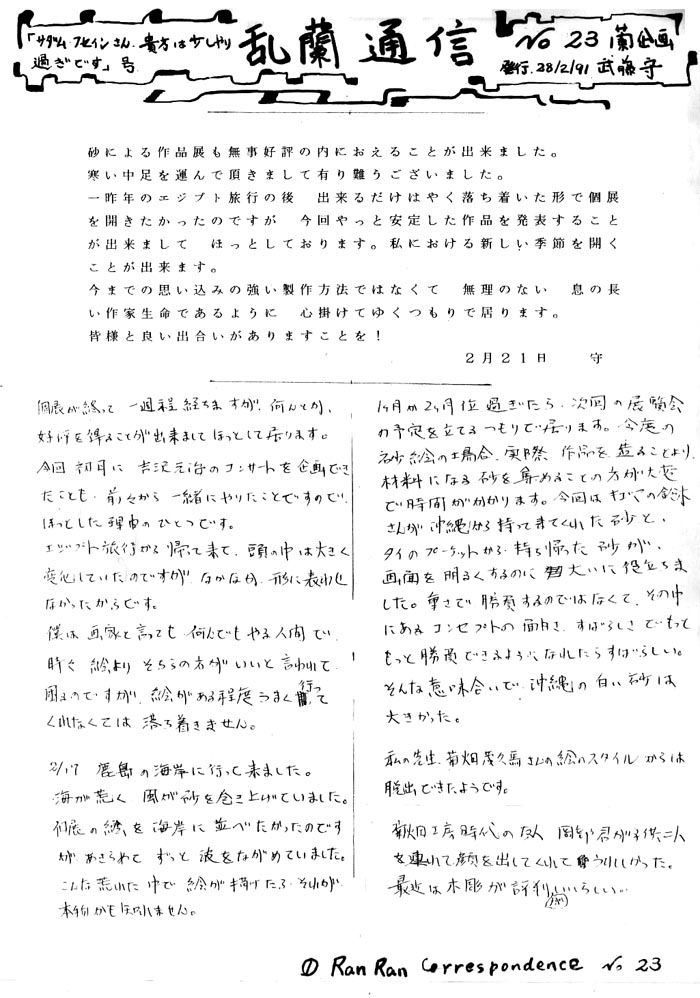 「サダム・フセインさん、貴方は少しやり
過ぎです」号
乱蘭通信
No 23 蘭企画
発行. 28/2/91 武藤守
砂による作品展も無事好評の内におえることが出来ました。
寒い中足を運んで頂きまして有り難うございました。
一昨年のエジプト旅行の後　出来るだけはやく落ち着いた形で個展
を開きたかったのですが　今回やっと安定した作品を発表すること
が出来まして　ほっとしております。私における新しい季節を開く
ことが出来ます。
今までの思い込みの強い製作方法ではなくて　無理のない　息の長
い作家生命であるように　心掛けてゆくつもりで居ります。
皆様と良い出合いがありますことを！
2月21日　守
個展が終って 一週程経ちますが、何んとか、
好評を得ることが出来ましてほっとして居ります。
今回 初日に 吉沢元治のコンサートを企画でき
たことも、前々から一緒にやりたことですので、
ほっとした理由のひとつです。
エジプト旅行から帰って来て、頭の中は大きく
変化していたのですが、なかなか、形に表れ
なかったからです。
僕は画家と言っても 何んでもやる人間で、
時々 絵より そちらの方がいいと言われて
困るのですが、絵がある程度うまく行って
くれなくては 落ち着きません。
2/17 鹿島の海岸に行って来ました。
海が荒く 風が砂を巻き上げていました。
個展の絵を海岸に並べたかったのです
が あきらめて ずっと波をながめていました。
こんな荒れた中で 絵が描けたら それが、
本物かも知れません。
1ヶ月か2ヶ月位過ぎたら、次回の展覧会
の予定を立てるつもりで居ります。今度の
砂絵の場合、実際 作品を造ることより、
材料になる砂を集めることの方が大変
で時間がかかります。今回は
さんが沖縄から持って来てくれた砂と、
タイのプーケットから持ち帰った砂が、
画面を明るくするのに 大いに役立ちま
した。重さで勝負するのではなくて、その中
にあるコンセプトの面白さ、すばらしさでもっと
もっと勝負できるようになれたらすばらしい。
そんな意味合いで、沖縄の白い砂は
大きかった。
私の先生、菊畑茂久馬さんの絵のスタイルからは
脱出できたようです。
菊畑工房時代の友人 岡部君が子供二人
を連れて顔を出してくれて うれしかった。
最近は木彫が評判いいらしい…
① Ran Ran Correspondence No 23